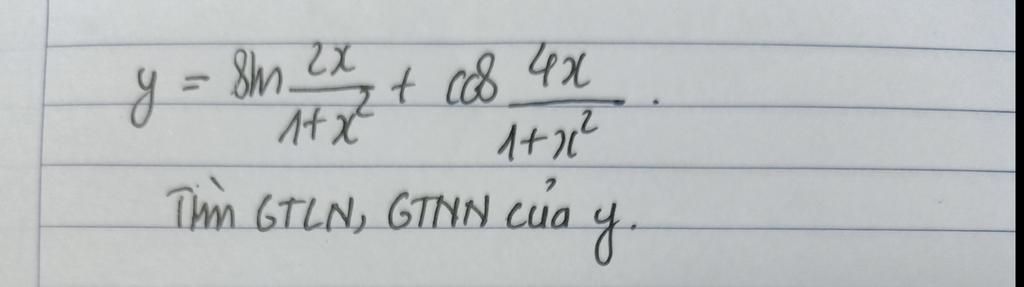 y = sin 2x/(1+x²) + cos 4x/(1+x²).
Tìm GTLN, GTNN của y.